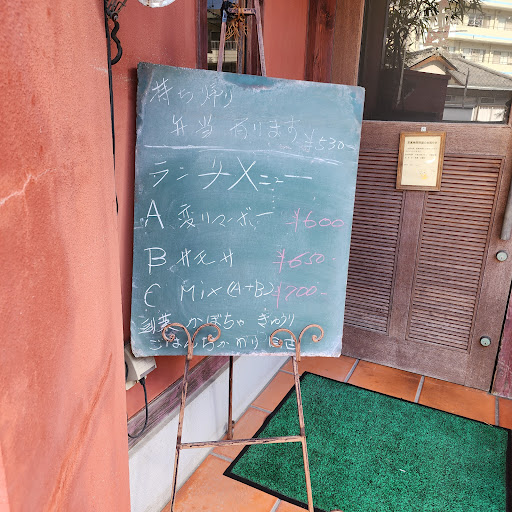 持ち帰り
弁当 有ります ¥530-
ランチメニュー
A 変りマーボー ¥600
B サスサ ¥650-
C Mix(A+B) ¥700-
副菜 かぼちゃ きゅうり
ごはん おかわり